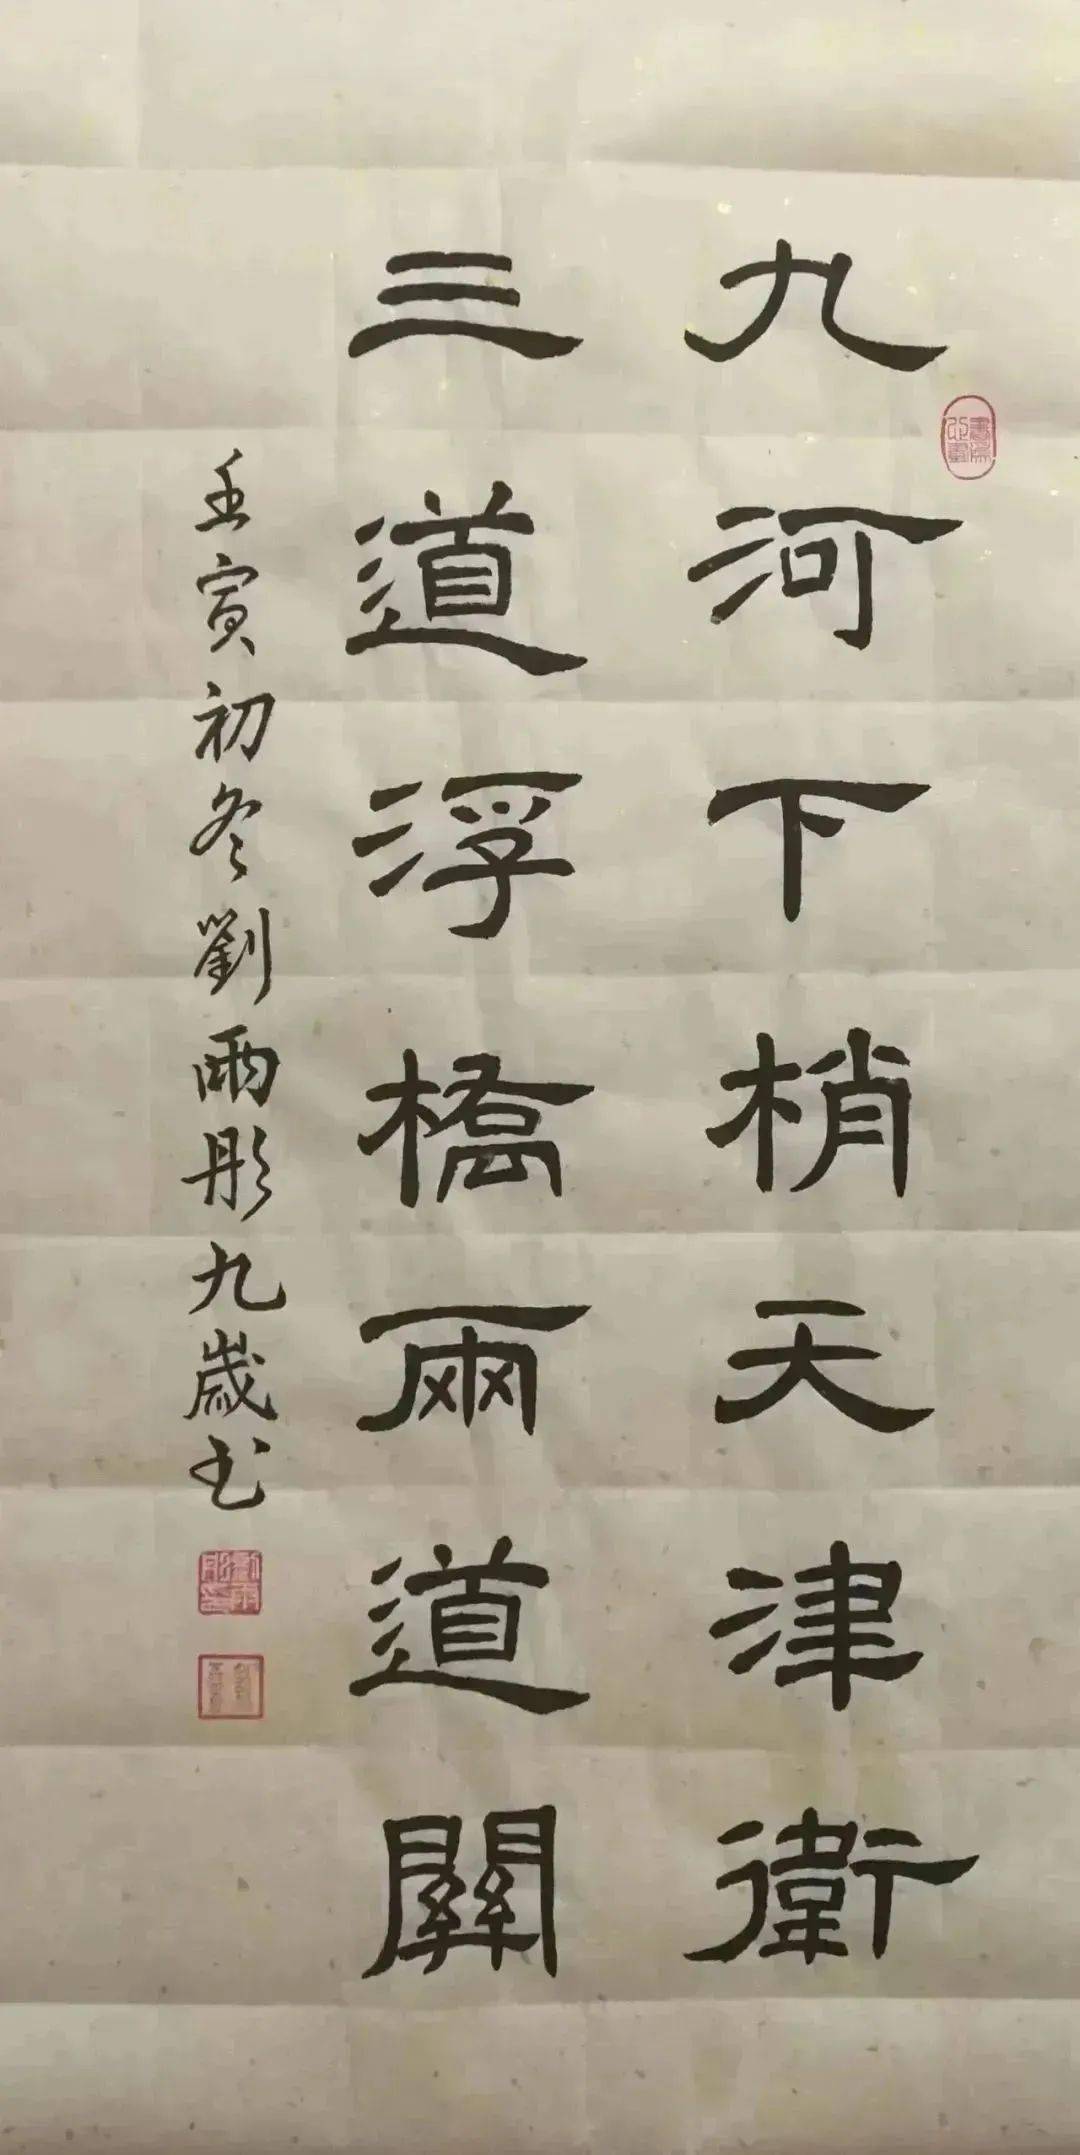 九河下梢天津衛
三道浮橋兩道關
壬寅初冬劉雨彤九歲书